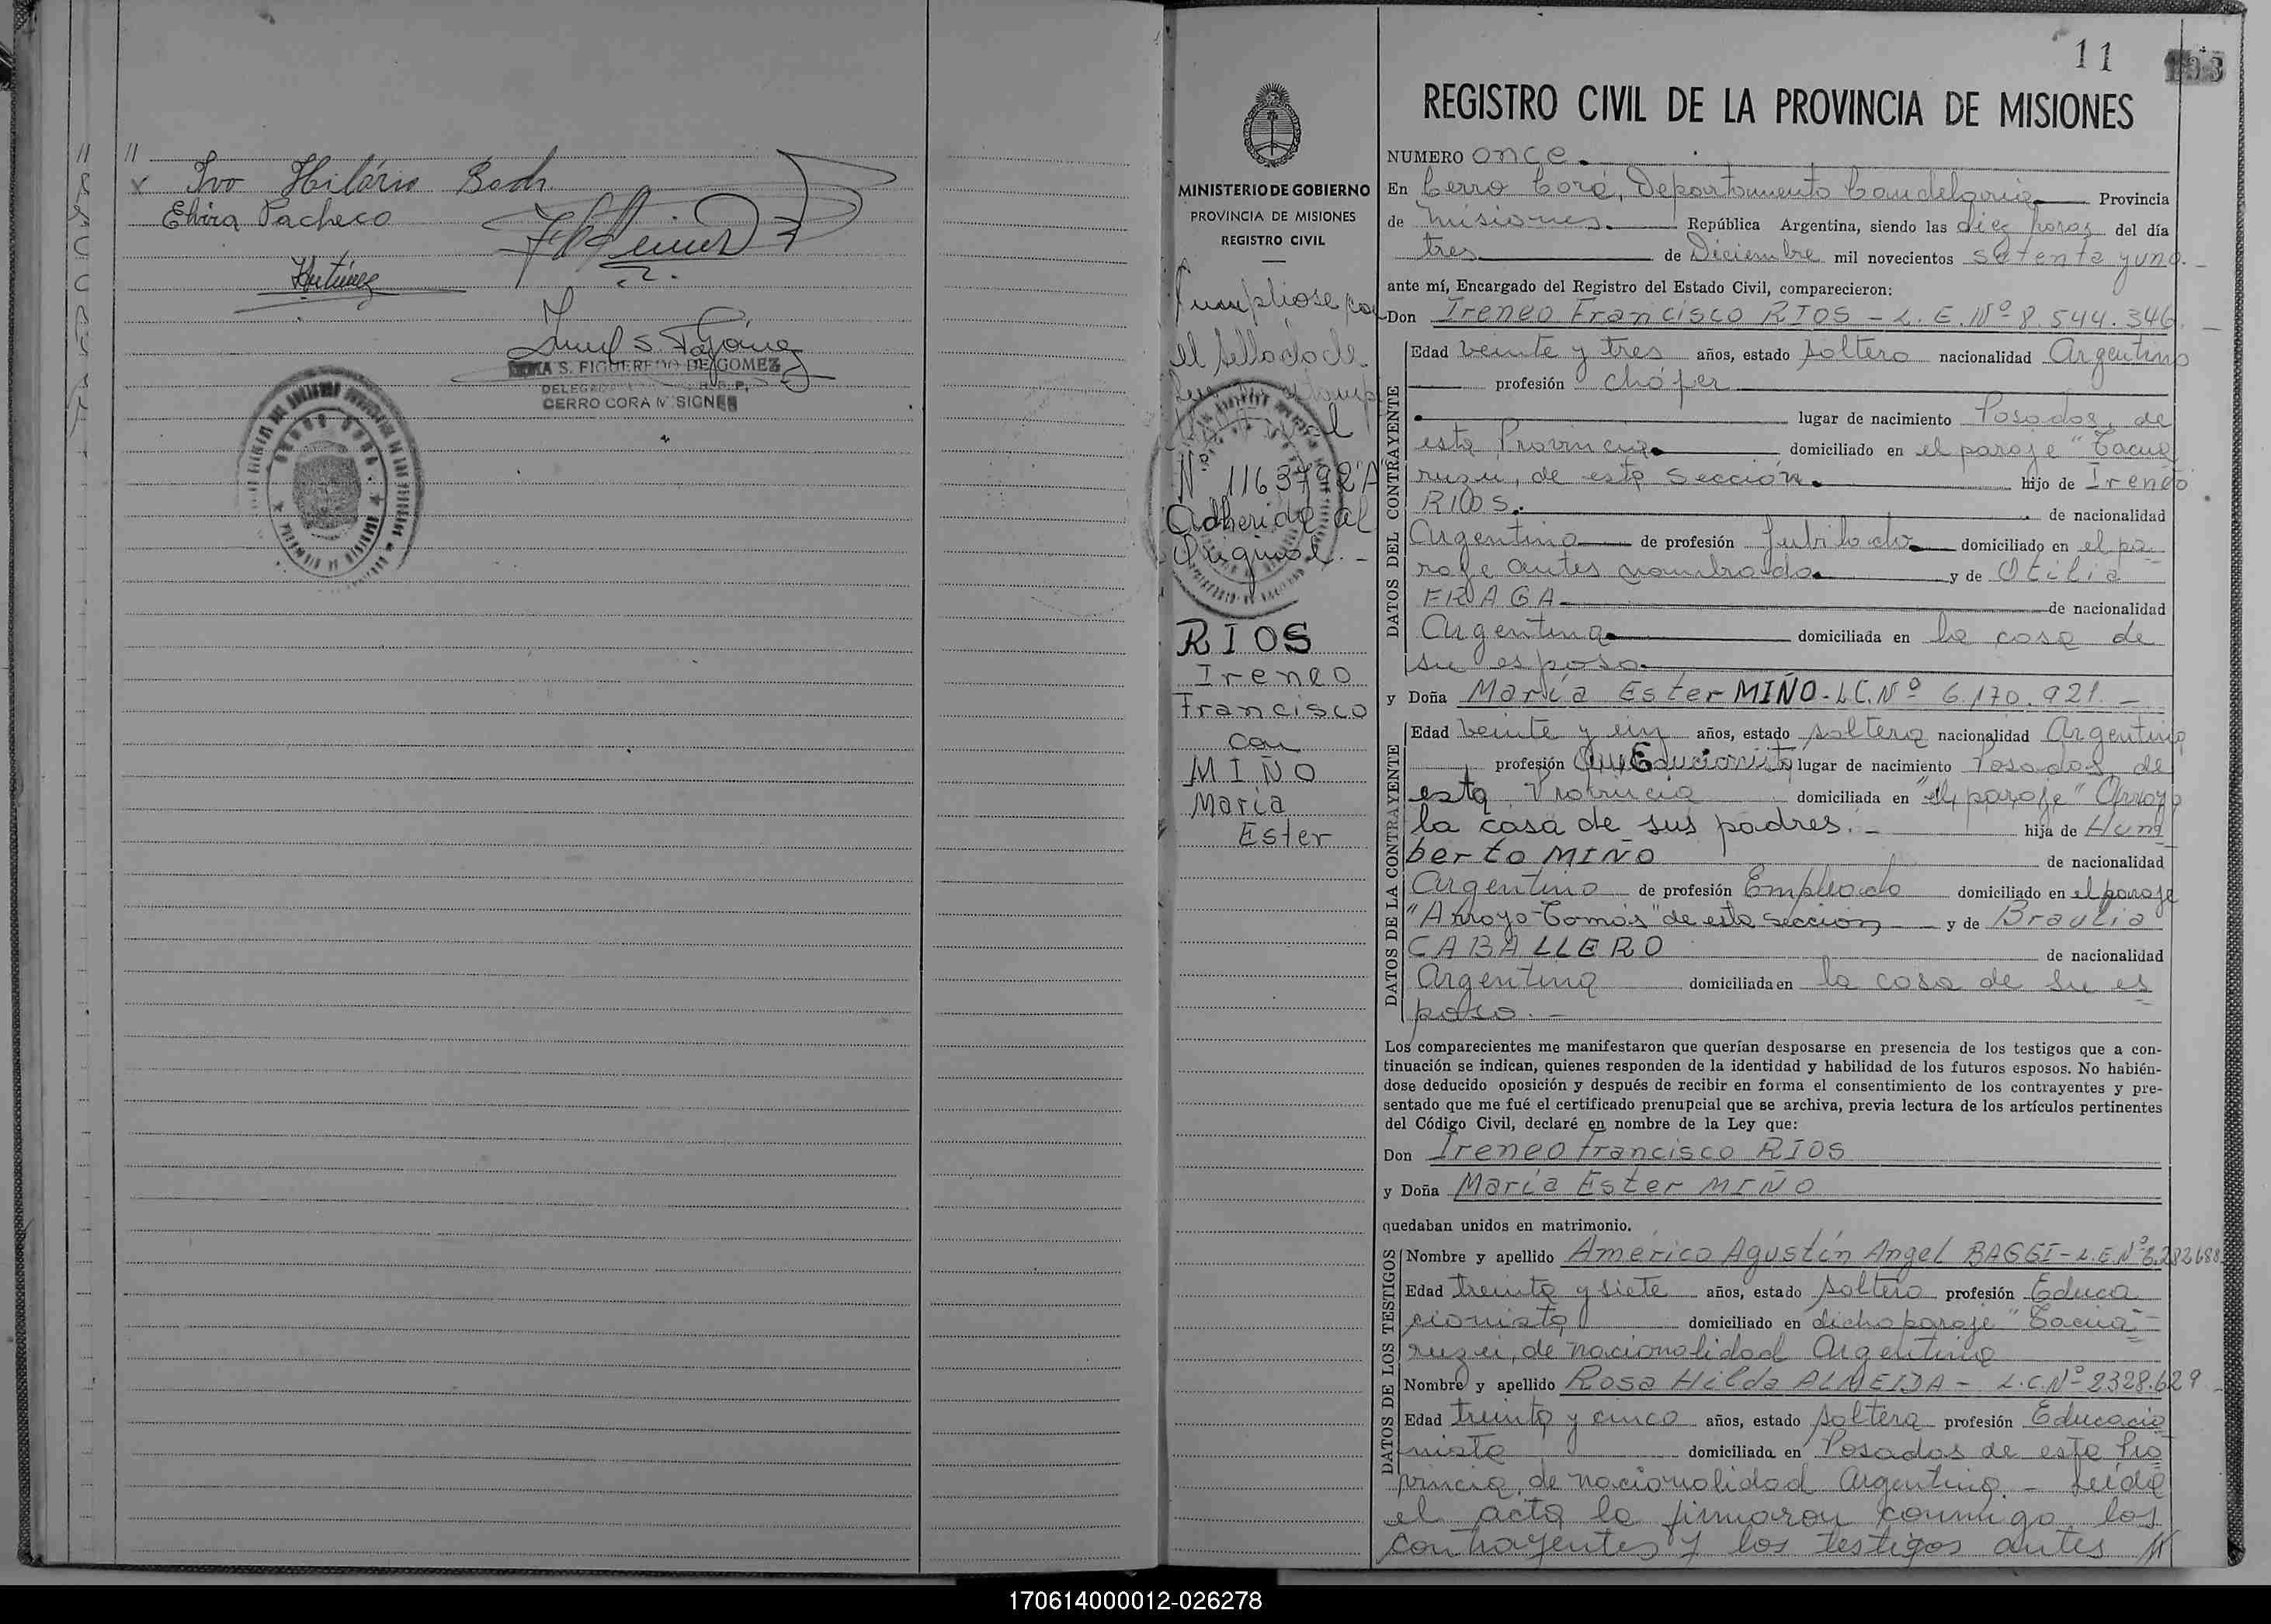 Ivo Hilário Bach
Elvira Pacheco
S. FIGUEREDO DE GOMEZ
CERRO CORA MISIONES
11
REGISTRO CIVIL DE LA PROVINCIA DE MISIONES
MINISTERIO DE GOBIERNO
PROVINCIA DE MISIONES
REGISTRO CIVIL
el sellado de
Nº 1163792 A
Adherido al
Original.-
RIOS
Ireneo
Francisco
con
MIÑO
María
Ester
NUMERO once.
En Cerro Corá, Departamento Candelaria Provincia
de Misiones. República Argentina, siendo las diez horas del día
tres de Diciembre mil novecientos setenta y uno.-
ante mí, Encargado del Registro del Estado Civil, comparecieron:
Don Ireneo Francisco RIOS - L. E. Nº 8.544.346. -
DATOS DEL CONTRAYENTE
Edad veinte y tres años, estado soltero nacionalidad Argentino
profesión chófer
lugar de nacimiento Posadas, de
esta Provincia domiciliado en el paraje "Tacua
ruzú, de esta Sección. hijo de Ireneo
RIOS. de nacionalidad
Argentino de profesión Jubilado domiciliado en el pa
raje antes nombrado. y de Otilia
FRAGA de nacionalidad
Argentina domiciliada en la casa de
su esposo.
y Doña María Ester MIÑO - L.C. Nº 6.170.921. -
DATOS DE LA CONTRAYENTE
Edad veinte y un años, estado soltera nacionalidad Argentina
profesión Educionista lugar de nacimiento Posadas, de
esta Provincia domiciliada en "el paraje" Arroyo
la casa de sus padres. - hija de Hum
berto MIÑO de nacionalidad
Argentino de profesión Empleado domiciliado en el paraje
"Arroyo Tomás" de esta sección y de Braulia
CABALLERO de nacionalidad
Argentina domiciliada en la casa de su es
poso. -
Los comparecientes me manifestaron que querían desposarse en presencia de los testigos que a con-
tinuación se indican, quienes responden de la identidad y habilidad de los futuros esposos. No habién-
dose deducido oposición y después de recibir en forma el consentimiento de los contrayentes y pre-
sentado que me fué el certificado prenupcial que se archiva, previa lectura de los artículos pertinentes
del Código Civil, declaré en nombre de la Ley que:
Don Ireneo Francisco RIOS
y Doña María Ester MIÑO
quedaban unidos en matrimonio.
DATOS DE LOS TESTIGOS
Nombre y apellido Américo Agustín Angel BAGGI - L.E. Nº
Edad treinta y siete años, estado soltero profesión Educa
cionista domiciliado en dicho paraje "Tacua-
ruzú, de nacionalidad Argentino
Nombre y apellido Rosa Hilda ALMEIDA - L.C. Nº 2328.629 -
Edad treinta y cinco años, estado soltera profesión Educacio
nista domiciliada en Posadas de esta Pro
vincia, de nacionalidad Argentina. - Leída
el acta la firmaron conmigo los
contrayentes y los testigos antes //
170614000012-026278